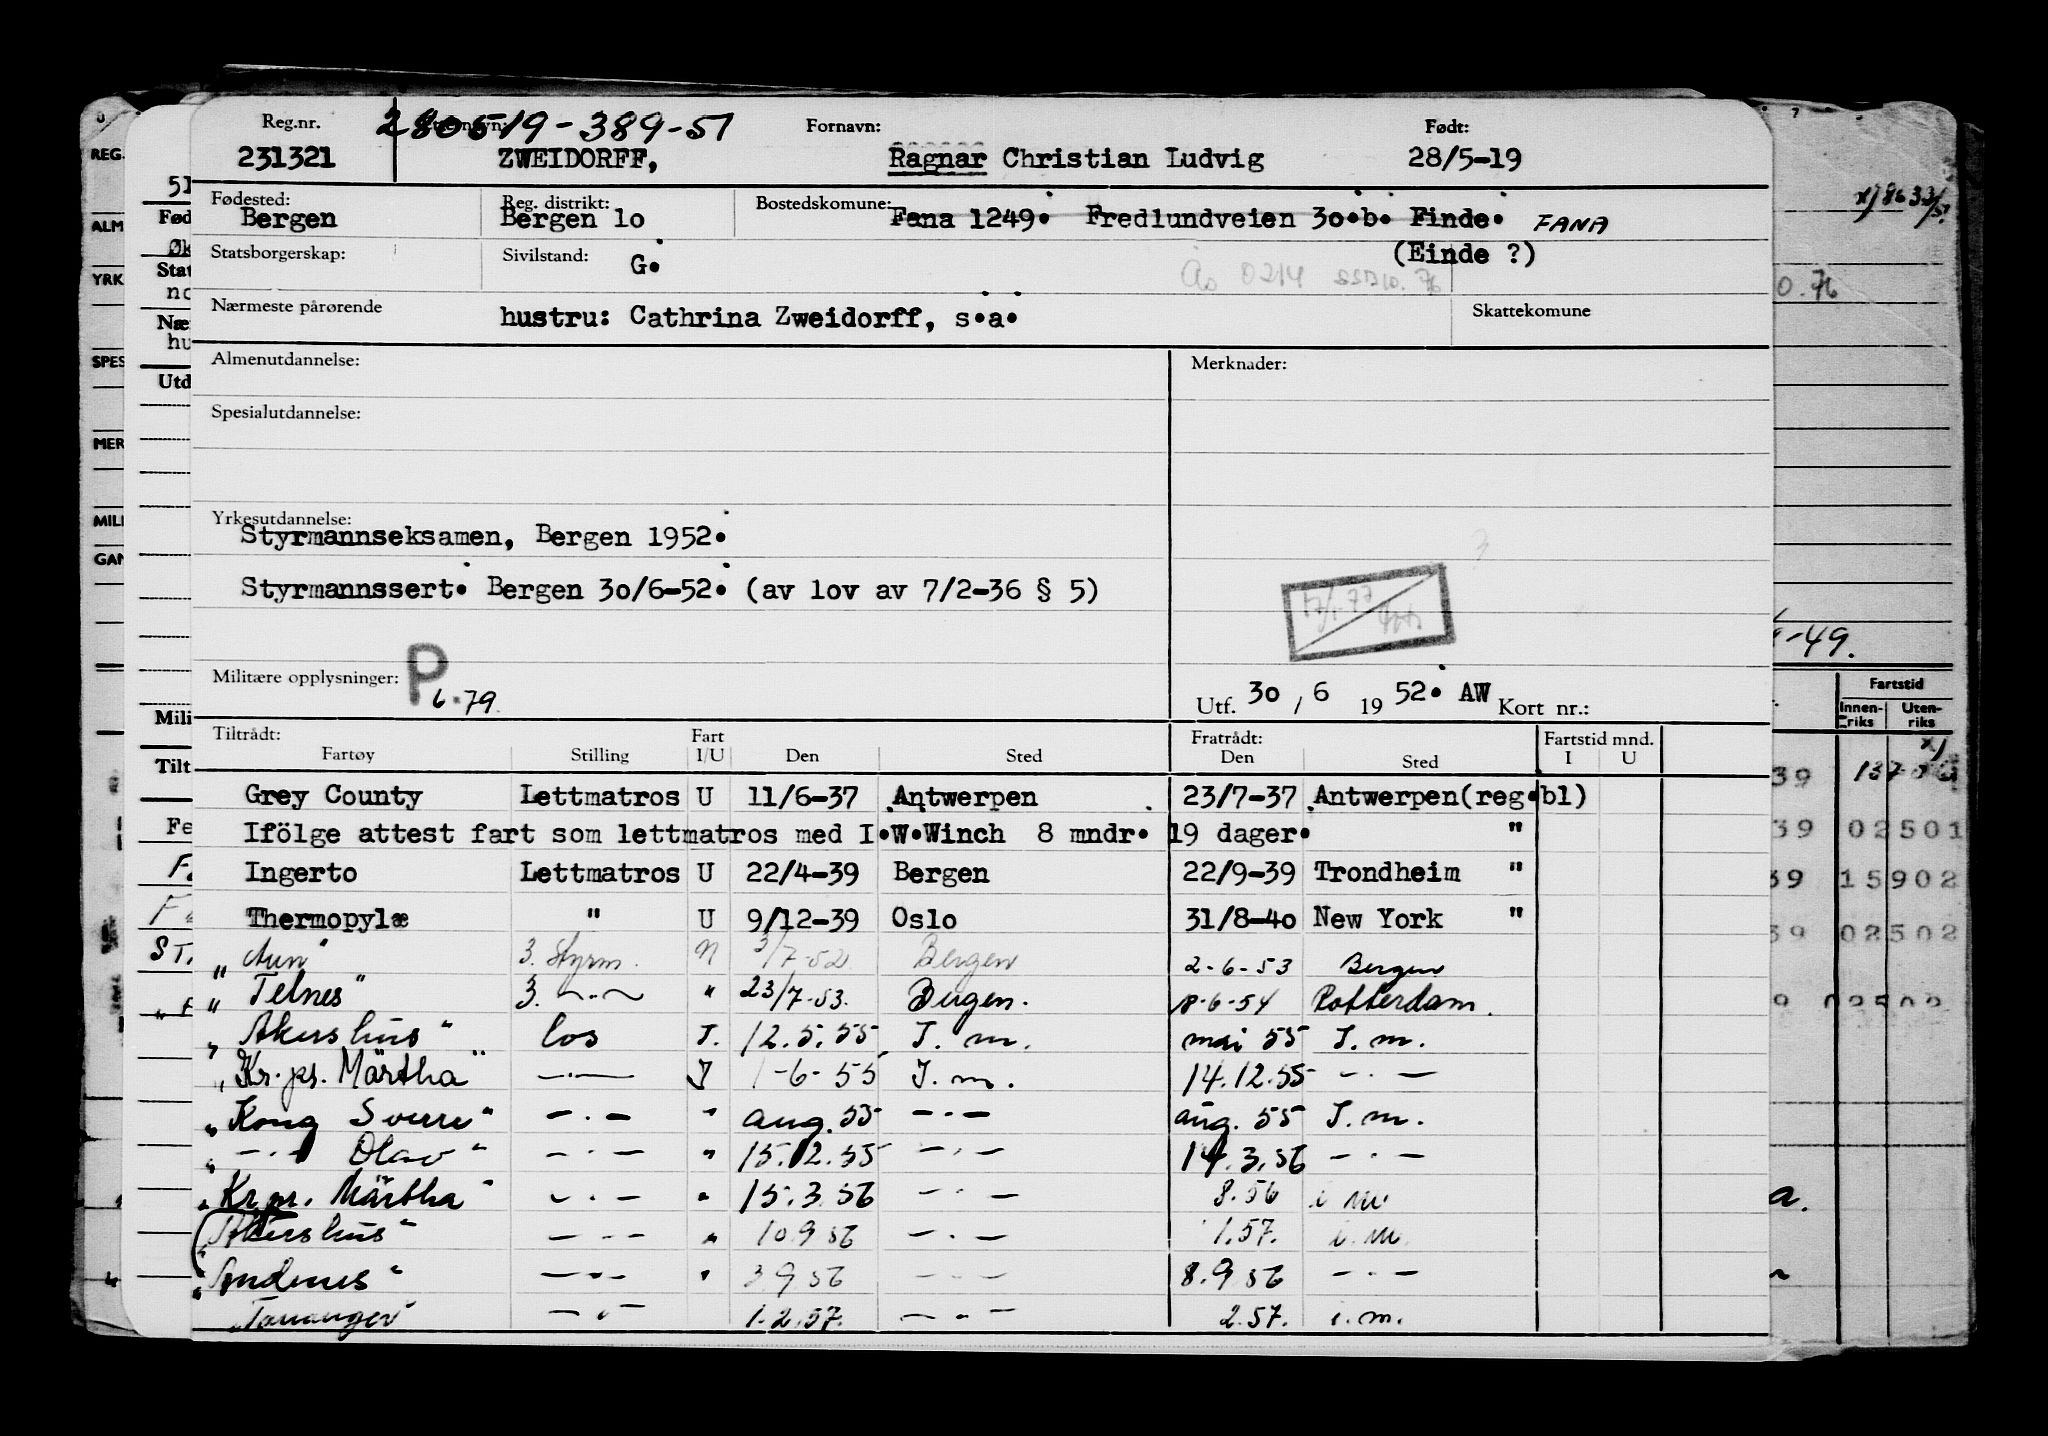 Reg.nr. 280519-389-51 Fornavn: Født:
231321 ZWEIDORFF, Ragnar Christian Ludvig 28/5-19
Fødested: Reg. distrikt: Bostedskomune:
Bergen Bergen 1o Fana 1249. Fredlundveien 3o.b. Finde. FANA
Statsborgerskap: Sivilstand: G. (Einde ?)
Nærmeste pårørende hustru: Cathrina Zweidorff, s.a. Skattekomune
Almenutdannelse: Merknader:
Spesialutdannelse:
Yrkesutdannelse:
Styrmannseksamen, Bergen 1952.
Styrmannssert. Bergen 3o/6-52. (av lov av 7/2-36 § 5)
Militære opplysninger: P 6.79. Utf. 3o / 6 19 52. AW Kort nr.:
Tiltrådt: Fart Fratrådt: Fartstid mnd.
Fartøy Stilling I/U Den Sted Den Sted I U
Grey County Lettmatros U 11/6-37 Antwerpen 23/7-37 Antwerpen(reg.bl)
Ifölge attest fart som lettmatros med I.W.Winch 8 mndr. 19 dager. "
Ingerto Lettmatros U 22/4-39 Bergen 22/9-39 Trondheim "
Thermopylæ " U 9/12-39 Oslo 31/8-4o New York "
3. Styrm. 3/7-52 Bergen 2-6-53 Bergen
"Telnes" 3. -.- " 23/7-53. Bergen. 18-6-54 Rotterdam.
"Akershus" los I. 12.5.55 I.m. mai 55 I.m.
"Kr.ps. Märtha" -.- I 1-6-55 I.m. 14.12.55 -.-
"Kong Sverre" -.- " aug.55 -.- aug. 55 I.m.
"-.- Olav" -.- " 15.12.55 -.- 14.3.56 -.-
"Kr.pr. Märtha" -.- " 15.3.56 -.- 8.56 i m
"Akershus" -.- " 10 9 56 -.- 1.57. i.m.
"Andenes" -.- " 3 9 56 -.- 8.9 56 -.-
"Tananger" -.- 1.2.57. -.- 2.57. i.m.
REG.
ALM
YRK
SPES
MER
MILI
GAN
51
Fød
Øk
Stat
no
Nær
hu
Utd
Mili
Tilt
Fe
ST.
0.76
-49.
Fartstid
Innenriks Utenriks
39
39 02501
39 15902
39 02502
9 02502
a.